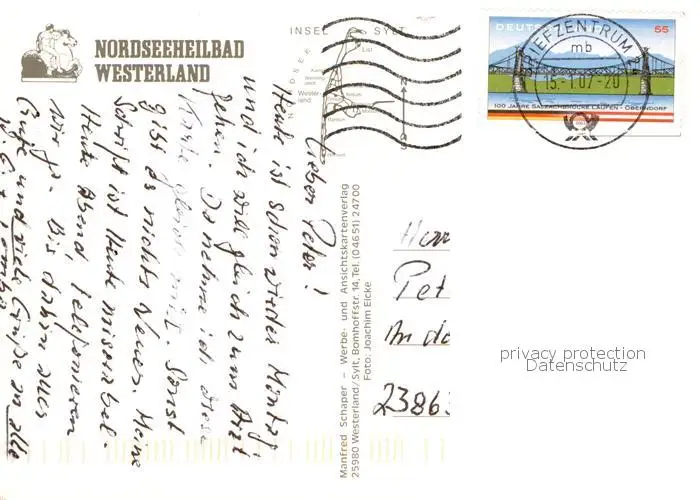 NORDSEEHEILBAD
WESTERLAND
INSEL SYLT
NORDSEE
List
Wester-
land
N
S
DEUTSCH
55
BRIEFZENTRUM
mb
15.-1.07-20
100 JAHRE SALZACHBRÜCKE LAUFEN - OBERNDORF
Lieber Peter!
Heute ist schon wieder Montag
und ich will gleich zum Arzt
gehen. Da nehme ich diese
Karte gleich mit. Sonst
gibt es nichts Neues. Meine
Schrift ist heute miserabel.
Heute Abend telefonieren
wir ja. Bis dahin alles
Gute und viele Grüße an alle
Manfred Schaper – Werbe- und Ansichtskartenverlag
25980 Westerland/Sylt, Bomhoffstr. 14, Tel. (04651) 24700
Foto: Joachim Eicke
Herr
Pet
An de
23863
privacy protection
Datenschutz